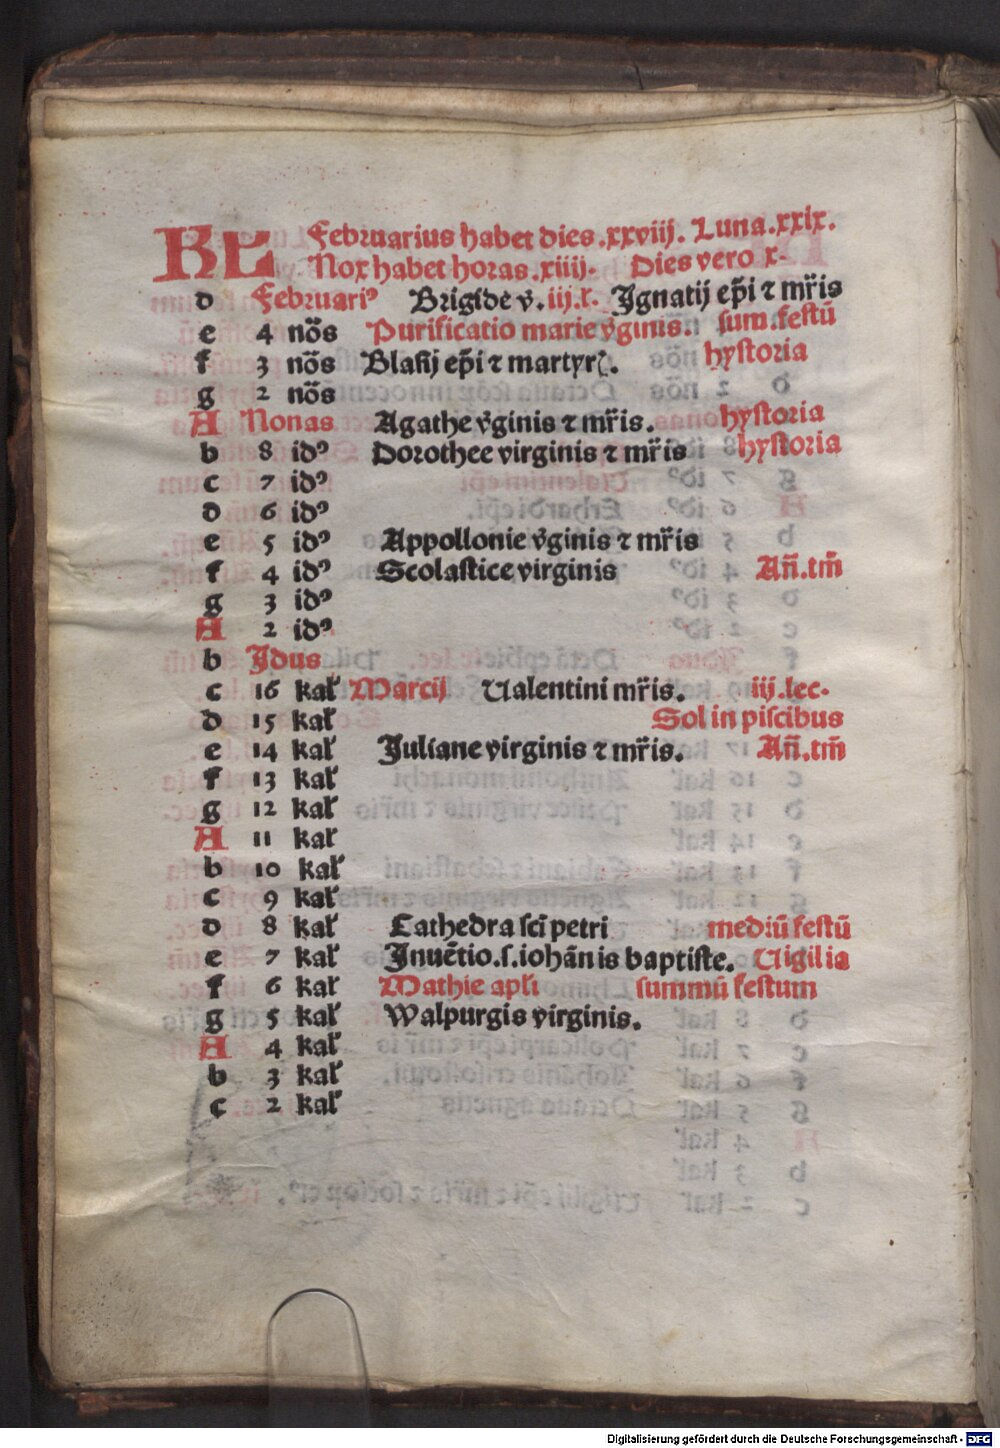 KL Februarius habet dies .xxviij. Luna .xxix.
Nox habet horas .xiiij. Dies vero x.
d Februariꝰ Brigide v̄. iij.l. Ignatij ep̄i ⁊ mr̄is
e 4 nōs Purificatio marie v̄ginis. sum. festū
f 3 nōs Blasij ep̄i ⁊ martyrꝭ. hystoria
g 2 nōs
A Nonas Agathe v̄ginis ⁊ mr̄is. hystoria
b 8 idꝰ Dorothee virginis ⁊ mr̄is hystoria
c 7 idꝰ
d 6 idꝰ
e 5 idꝰ Appollonie v̄ginis ⁊ mr̄is
f 4 idꝰ Scolastice virginis An̄.tm̄
g 3 idꝰ
A 2 idꝰ
b Idus
c 16 kal̕ Marcij Ualentini mr̄is. iij.lec.
d 15 kal̕ Sol in piscibus
e 14 kal̕ Juliane virginis ⁊ mr̄is. An̄.tm̄
f 13 kal̕
g 12 kal̕
A 11 kal̕
b 10 kal̕
c 9 kal̕
d 8 kal̕ Cathedra sci̅ petri mediū festū
e 7 kal̕ Inuētio .s. iohānis baptiste. Uigilia
f 6 kal̕ Mathie apl̄i summū festum
g 5 kal̕ Walpurgis virginis.
A 4 kal̕
b 3 kal̕
c 2 kal̕
Digitalisierung gefördert durch die Deutsche Forschungsgemeinschaft - DFG